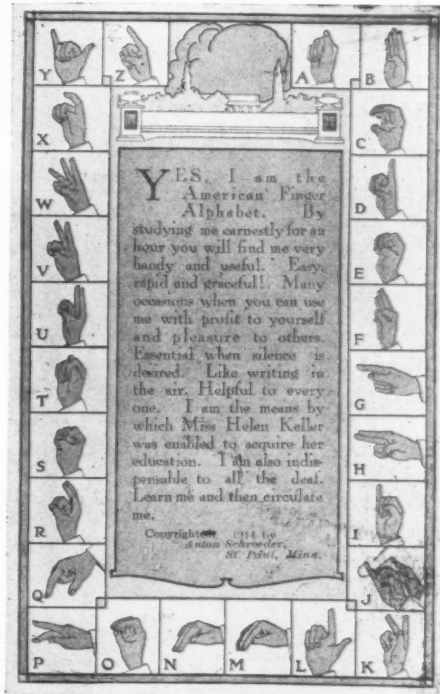 Y
Z
A
B
X
C
W
D
V
E
U
F
T
G
S
H
R
I
Q
J
P
O
N
M
L
K
YES, I am the
American Finger
Alphabet. By
studying me earnestly for an
hour you will find me very
handy and useful. Easy,
rapid and graceful! Many
occasions when you can use
me with profit to yourself
and pleasure to others.
Essential when silence is
desired. Like writing in
the air. Helpful to every
one. I am the means by
which Miss Helen Keller
was enabled to acquire her
education. I am also indis-
pensable to all the deaf.
Learn me and then circulate
me.
Copyrighted 1914 by
Anton Schroeder,
St. Paul, Minn.